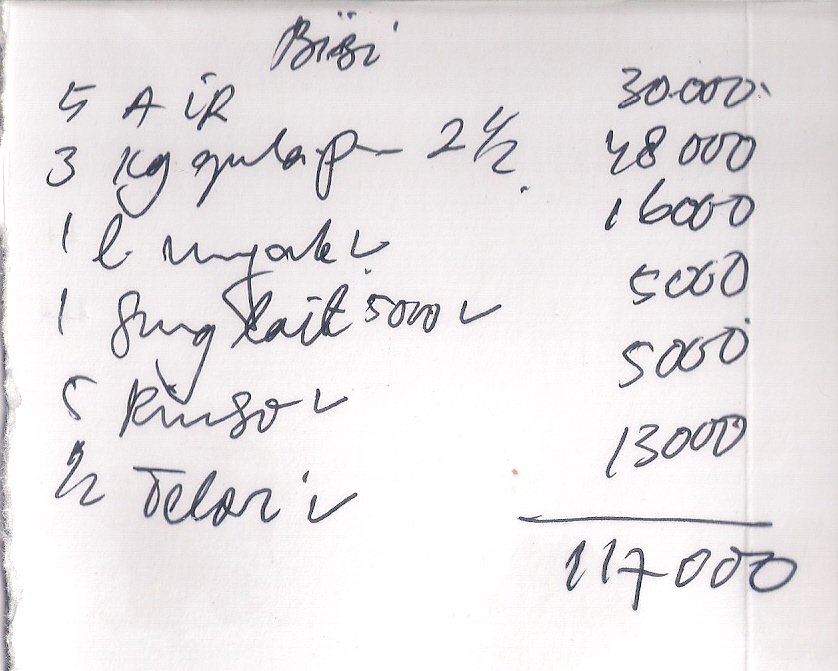 Bibi
5 AIR 30.000
3 Kg gula p 2 1/2 48 000
1 l. minyak ✓ 16000
1 Sung lait 5000 ✓ 5000
5 Rinso ✓ 5000
1/2 Telor ✓ 13000
117000